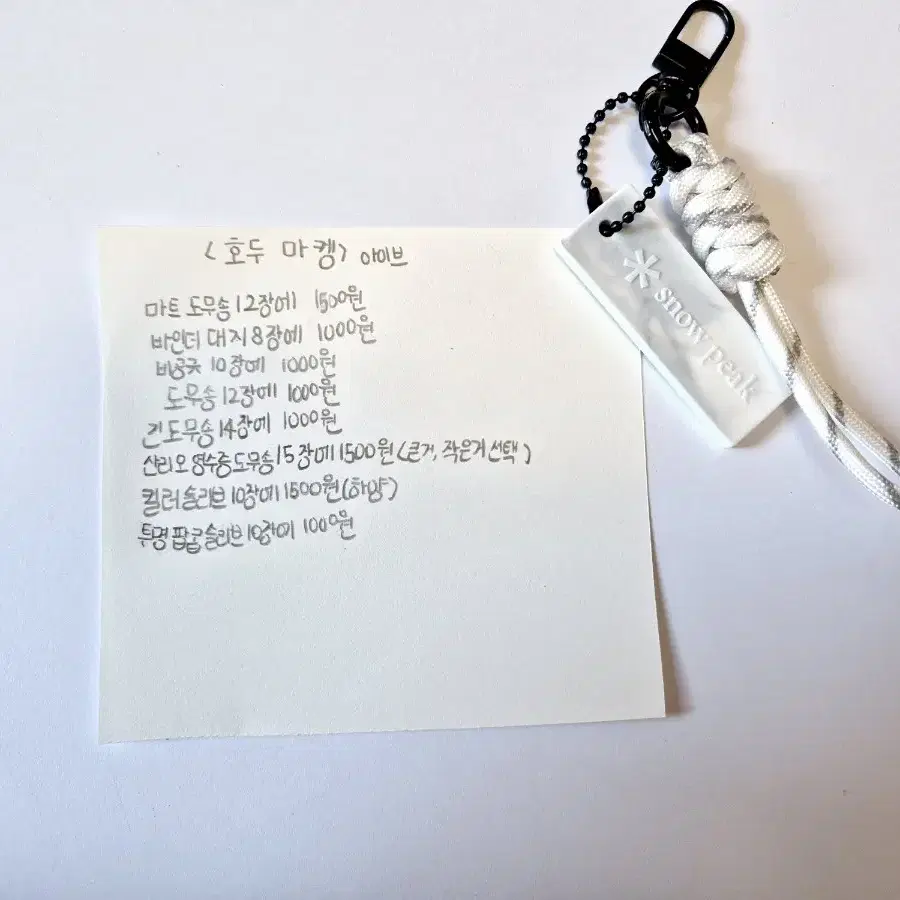 < 호두 마켓> 아이브
마트 도무송 12장에 1500원
바인더 대지 8장에 1000원
비공굿 10장에 1000원
도무송 12장에 1000원
긴 도무송 14장에 1000원
산리오 영수증 도무송 15장에 1500원 (큰거, 작은거 선택)
킬러 슬리브 10장에 1500원 (하양)
투명 팝콘 슬리브 10장에 1000원
snow peak